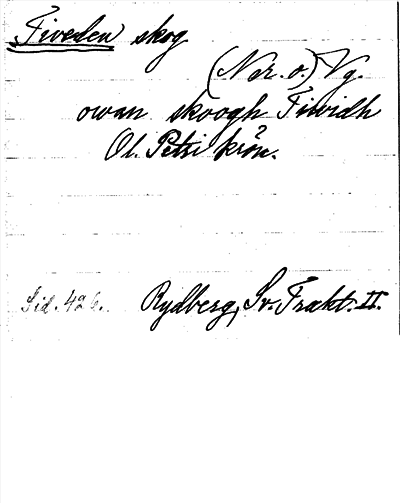 Tiveden skog
(När. o.) Vg.
owan skoogh Tiwidh
Ol. Petri krön.
Sid. 426. Rydberg, Sv. Trakt. II.